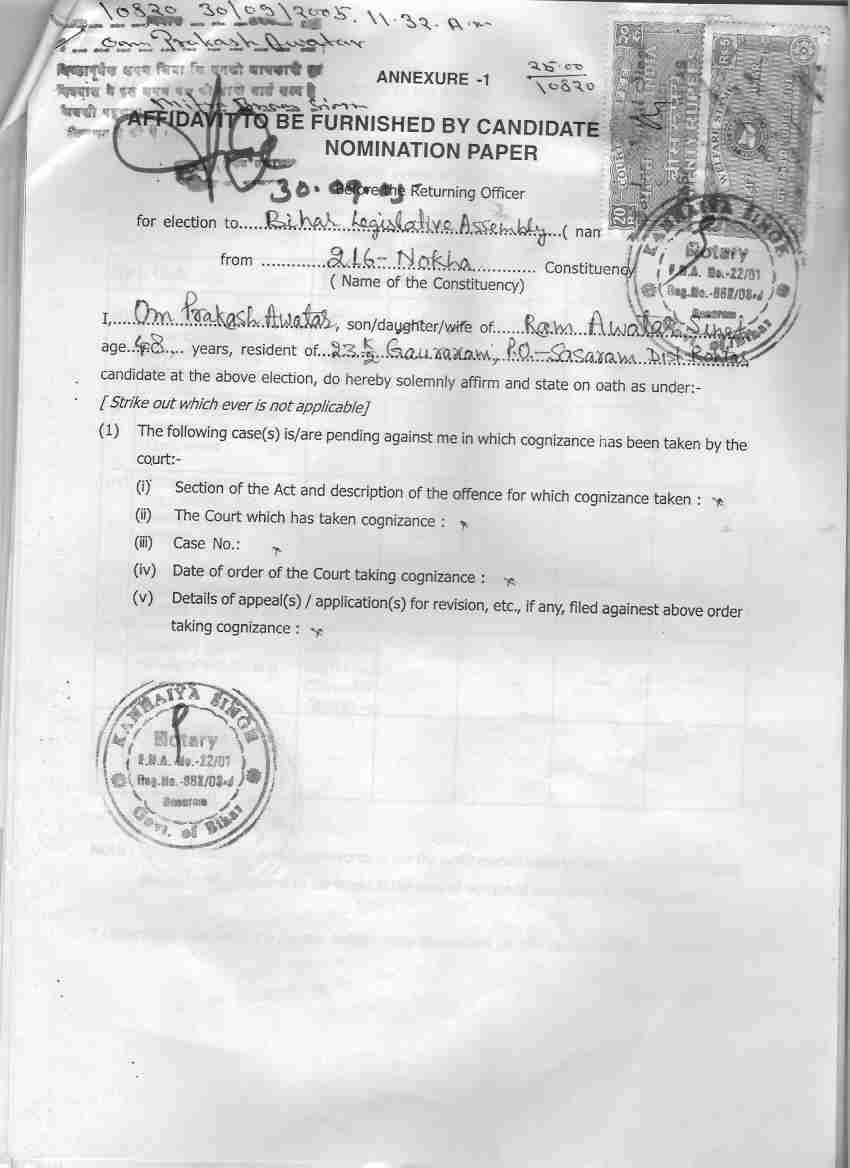 10820 30/09/2005. 11.32. A.m
Om Prakash Awatar
ANNEXURE -1
25.00
10820
AFFIDAVIT TO BE FURNISHED BY CANDIDATE
NOMINATION PAPER
30.09.05
Before the Returning Officer
for election to.....Bihar Legislative Assembly...( nan
from ...............216-Nokha............... Constituency
( Name of the Constituency)
I,.....Om Prakash Awatar, son/daughter/wife of......Ram Awatar Singh
age..48.... years, resident of..23 Gaurakani, P.O-Sasaram Dist Rohtas
candidate at the above election, do hereby solemnly affirm and state on oath as under:-
[ Strike out which ever is not applicable]
(1) The following case(s) is/are pending against me in which cognizance has been taken by the
court:-
(i) Section of the Act and description of the offence for which cognizance taken : x
(ii) The Court which has taken cognizance : x
(iii) Case No.: x
(iv) Date of order of the Court taking cognizance : x
(v) Details of appeal(s) / application(s) for revision, etc., if any, filed againest above order
taking cognizance : x
KANHAIYA SINGH
Notary
Reg.No.-
Sasaram
Govt. of Bihar
INDIA
TWENTY RUPEES
20
KANHAIYA SINGH
Notary
No.-22/01
Reg.No.-
Sasaram
of Bihar